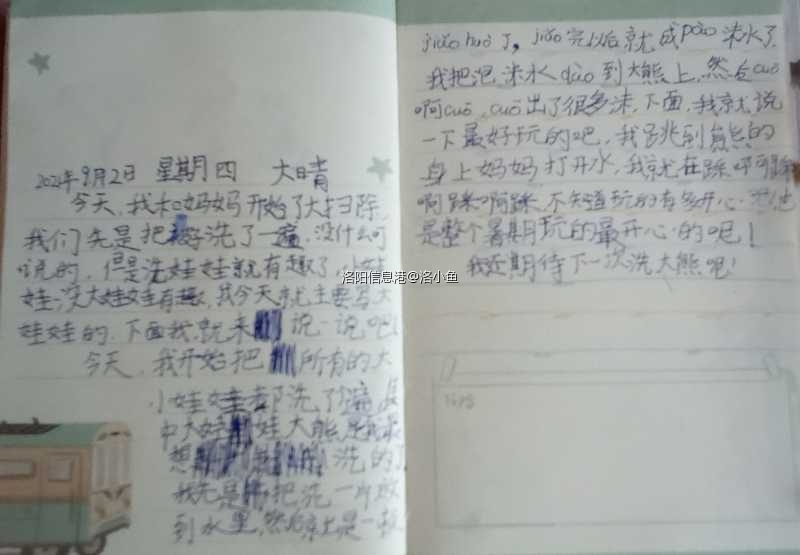 2021年9月2日 星期四 大晴
今天,我和妈妈开始了大扫除,
我们先是把 洗了一遍,没什么可
说的,但是洗娃娃就有趣了,小娃
娃没大娃娃有趣,我今天就主要写大
娃娃的,下面我就来 说一说吧!
今天,我开始把 所有的大
小娃娃都洗了 遍,其
中大娃娃大熊是我最
想 洗的了
我先是 把洗 放
到水里,然后就是一
jiǎo huò了,jiǎo完以后就成pào沫水了
我把泡沫水dào到大熊上,然后cuō
啊cuō,cuō出了很多沫,下面,我就说
一下最好玩的吧,我跳到熊的
身上妈妈打开水,我就在踩啊踩
啊踩啊踩,不知道玩的有多开心
是整个暑期玩的最开心的呢!
我还期待下一次洗大熊呢!
洛阳信息港@洛小鱼